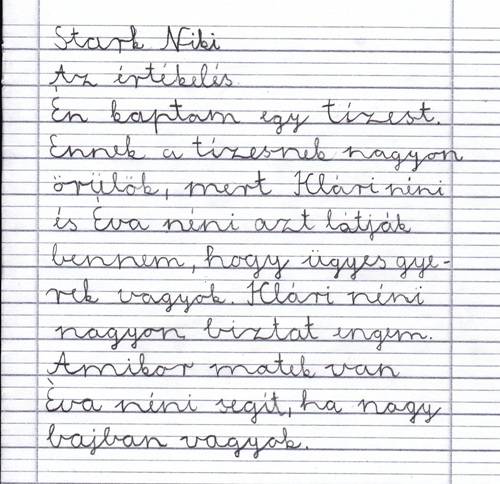 Stark Niki
Az értékelés
Én kaptam egy tízest.
Ennek a tízesnek nagyon
örülök, mert Klári néni
és Éva néni azt látják
bennem, hogy ügyes gye-
rek vagyok. Klári néni
nagyon biztat engem.
Amikor matek van
Éva néni segít, ha nagy
bajban vagyok.